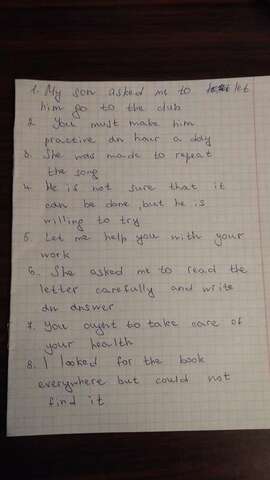 1. My son asked me to let
him go to the club
2. You must make him
practive an hour a day
3. She was made to repeat
the song
4. He is not sure that it
can be done, but he is
willing to try
5. Let me help you with your
work
6. She asked me to read the
letter carefully and write
an answer
7. You ought to take care of
your health
8. I looked for the book
everywhere but could not
find it